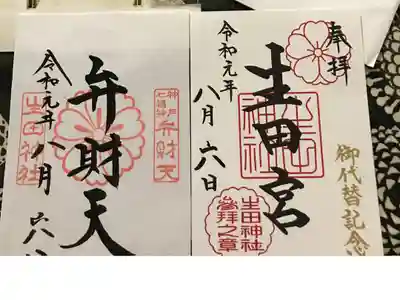 奉拝
生田宮
令和元年
八月六日
生田神社
参拝之章
御代替記念
神戸
七福神
弁財天
弁財天
令和元年
八月六
生田神社